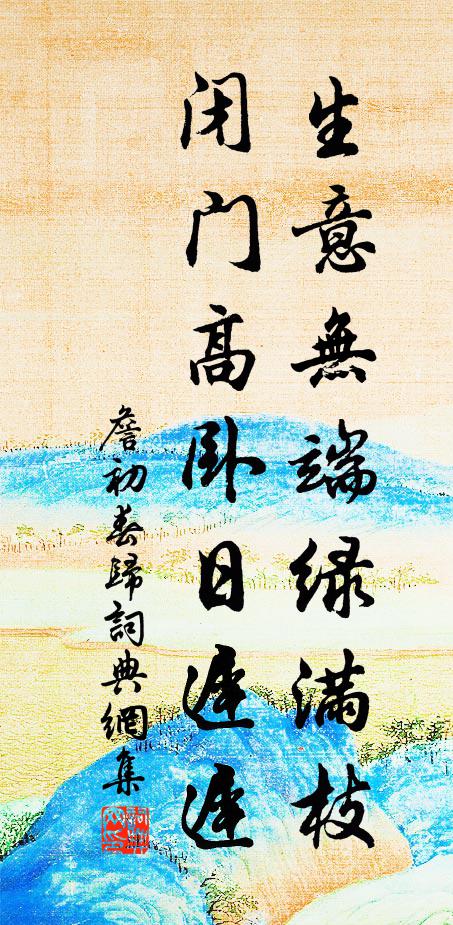 生意無端緑满枝
闭门高卧日遲遲
詹初春歸詞典網集